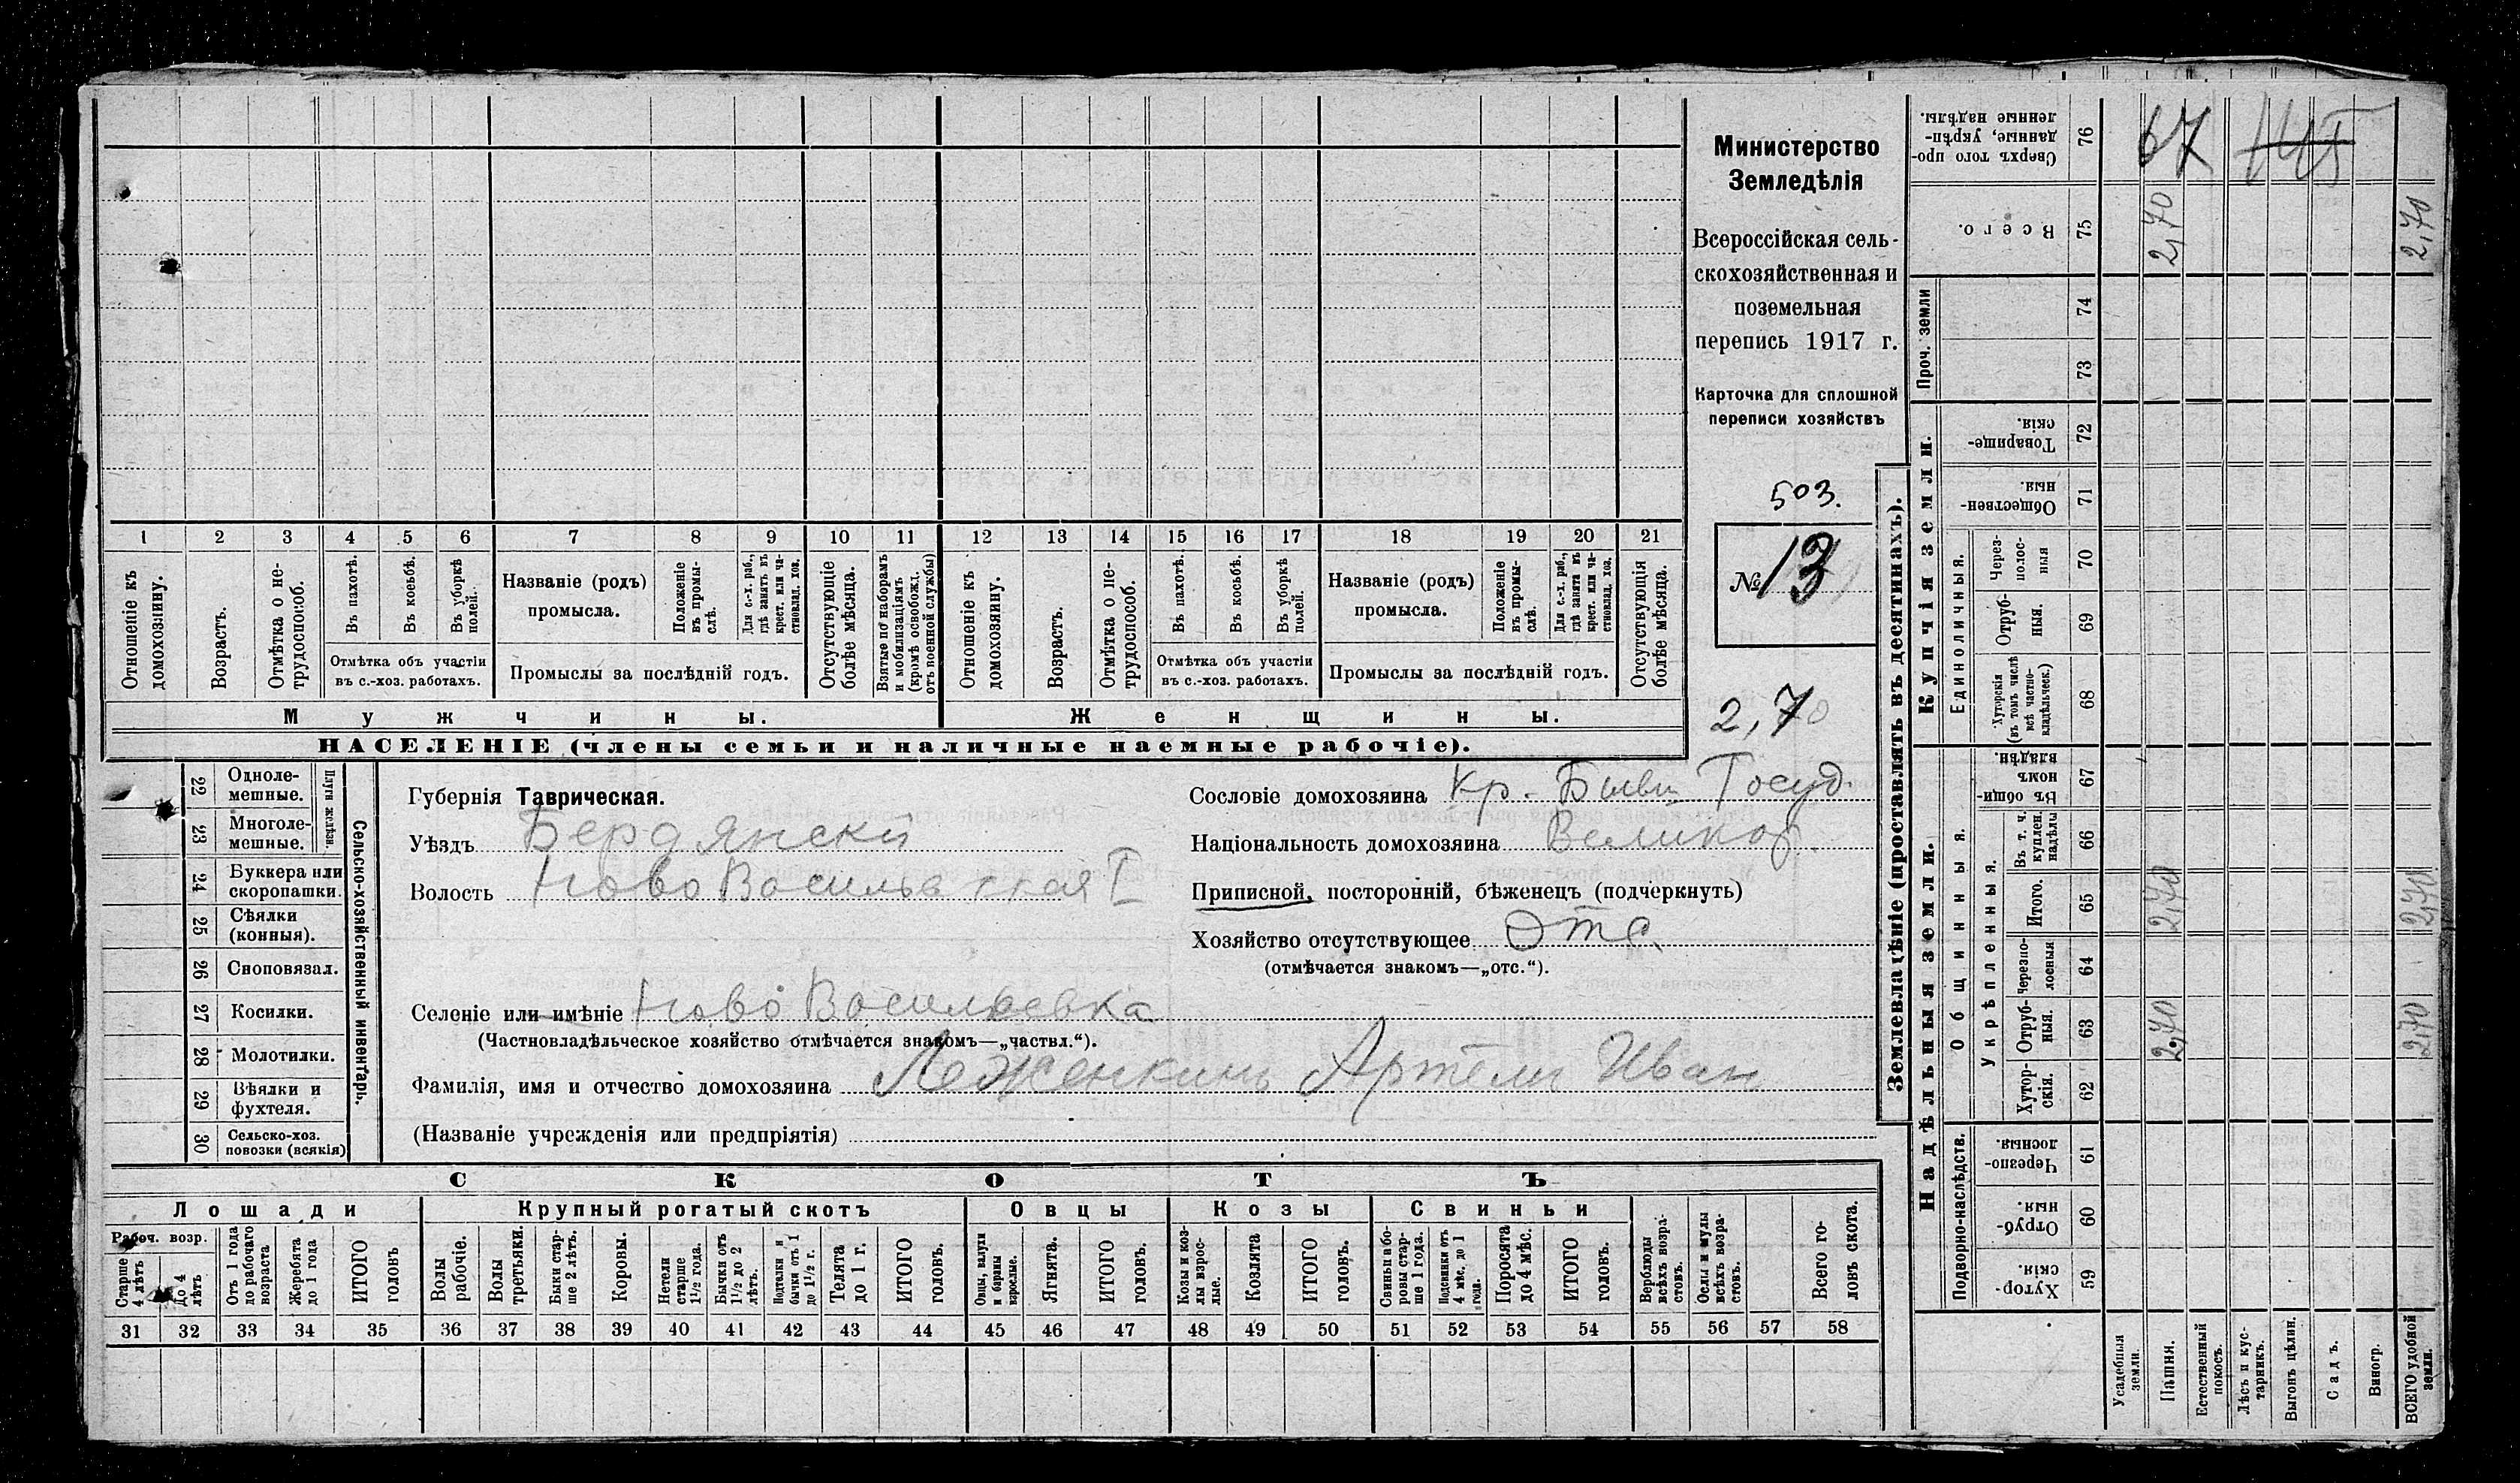 Министерство
Земледѣлія
Всероссійская сель-
скохозяйственная и
поземельная
перепись 1917 г.
Карточка для сплошной
переписи хозяйствъ
503.
№ 13
2,70
1 2 3 4 5 6 7 8 9 10 11 12 13 14 15 16 17 18 19 20 21
Отношеніе къ домохозяину.
Возрастъ.
Отмѣтка о не-трудоспособ.
Въ пахотѣ.
Въ косьбѣ.
Въ уборкѣ полей.
Отмѣтка объ участіи
въ с.-хоз. работахъ.
Названіе (родъ)
промысла.
Положеніе въ промы-слѣ.
Для с.-х. раб., гдѣ занятъ въ крест. или ча-стновлад. хоз.
Промыслы за послѣдній годъ.
Отсутствующіе болѣе мѣсяца.
Взятые по наборамъ и мобилизаціямъ (кромѣ освобожд. отъ военной службы)
Отношеніе къ домохозяину.
Возрастъ.
Отмѣтка о не-трудоспособ.
Въ пахотѣ.
Въ косьбѣ.
Въ уборкѣ полей.
Отмѣтка объ участіи
въ с.-хоз. работахъ.
Названіе (родъ)
промысла.
Положеніе въ промы-слѣ.
Для с.-х. раб., гдѣ занята въ крест. или ча-стновлад. хоз.
Промыслы за послѣдній годъ.
Отсутствующія болѣе мѣсяца.
Мужчины. Женщины.
НАСЕЛЕНІЕ (члены семьи и наличные наемные рабочіе).
22 Одноле-мешные.
23 Многоле-мешные.
Плуги желѣзн.
24 Буккера или скоропашки.
25 Сѣялки (конныя).
26 Сноповязал.
27 Косилки.
28 Молотилки.
29 Вѣялки и фухтеля.
30 Сельско-хоз. повозки (всякія)
Сельско-хозяйственный инвентарь.
Губернія Таврическая.
Уѣздъ Бердянски
Волость
Селеніе или имѣніе Ново Васильевка
(Частновладѣльческое хозяйство отмѣчается знакомъ—„частвл.“).
Фамилія, имя и отчество домохозяина Леженкинъ Артели Иван
(Названіе учрежденія или предпріятія)
Сословіе домохозяина Кр. Бывш Госуд.
Національность домохозяина Великор.
Приписной, посторонній, бѣженецъ (подчеркнуть)
Хозяйство отсутствующее Отс.
(отмѣчается знакомъ—„отс.“).
СКОТЪ
Лошади Крупный рогатый скотъ Овцы Козы Свиньи
Рабоч. возр.
Старше 4 лѣтъ
До 4 лѣтъ
Отъ 1 года до рабочаго возраста
Жеребята до 1 года
ИТОГО головъ
Волы рабочіе.
Волы третьяки.
Быки стар-ше 2 лѣтъ.
Коровы.
Нетели старше 1½ года.
Бычки отъ 1½ до 2 лѣтъ.
Подтелки и бычки отъ 1 до 1½ г.
Телята до 1 г.
ИТОГО головъ.
Овцы, валухи и бараны взрослые.
Ягнята.
ИТОГО головъ.
Козы и коз-лы взрос-лые.
Козлята
ИТОГО головъ.
Свиньи и бо-ровы стар-ше 1 года.
Подсвинки отъ 4 мѣс. до 1 года.
Поросята до 4 мѣс.
ИТОГО головъ.
Верблюды всѣхъ возра-стовъ.
Ослы и мулы всѣхъ возра-стовъ.
Всего го-ловъ скота.
31 32 33 34 35 36 37 38 39 40 41 42 43 44 45 46 47 48 49 50 51 52 53 54 55 56 57 58
Землевладѣніе (проставлять въ десятинахъ).
Надѣльныя земли. Купчія земли.
Проч. земли
Подворно-наслѣдств.
Общинныя.
Укрѣпленныя.
Единоличныя.
Хутор-скія. 59
Отруб-ныя. 60
Черезпо-лосныя. 61
Хутор-скія. 62
Отруб-ныя. 63 2,70 2,70
Черезпо-лосныя 64
Итого. 65 2,70 2,70
Въ т. ч. куплен. надѣлы 66
Въ общин-номъ владѣн. 67
Хуторскія (въ томъ числѣ всѣ частно-владѣльческ.) 68
Отруб-ныя. 69
Через-полос-ныя 70
Обществен-ныя. 71
Товарище-скія. 72
73
74
Всего. 75 2,70 2,70
Сверхъ того про-данные, укрѣп-ленные надѣлы. 76
67 145
Усадебныя земли.
Пашня.
Естественный покосъ.
Лѣсъ и кус-тарникъ.
Выгонъ цѣлин.
Садъ.
Виногр.
ВСЕГО удобной земли.